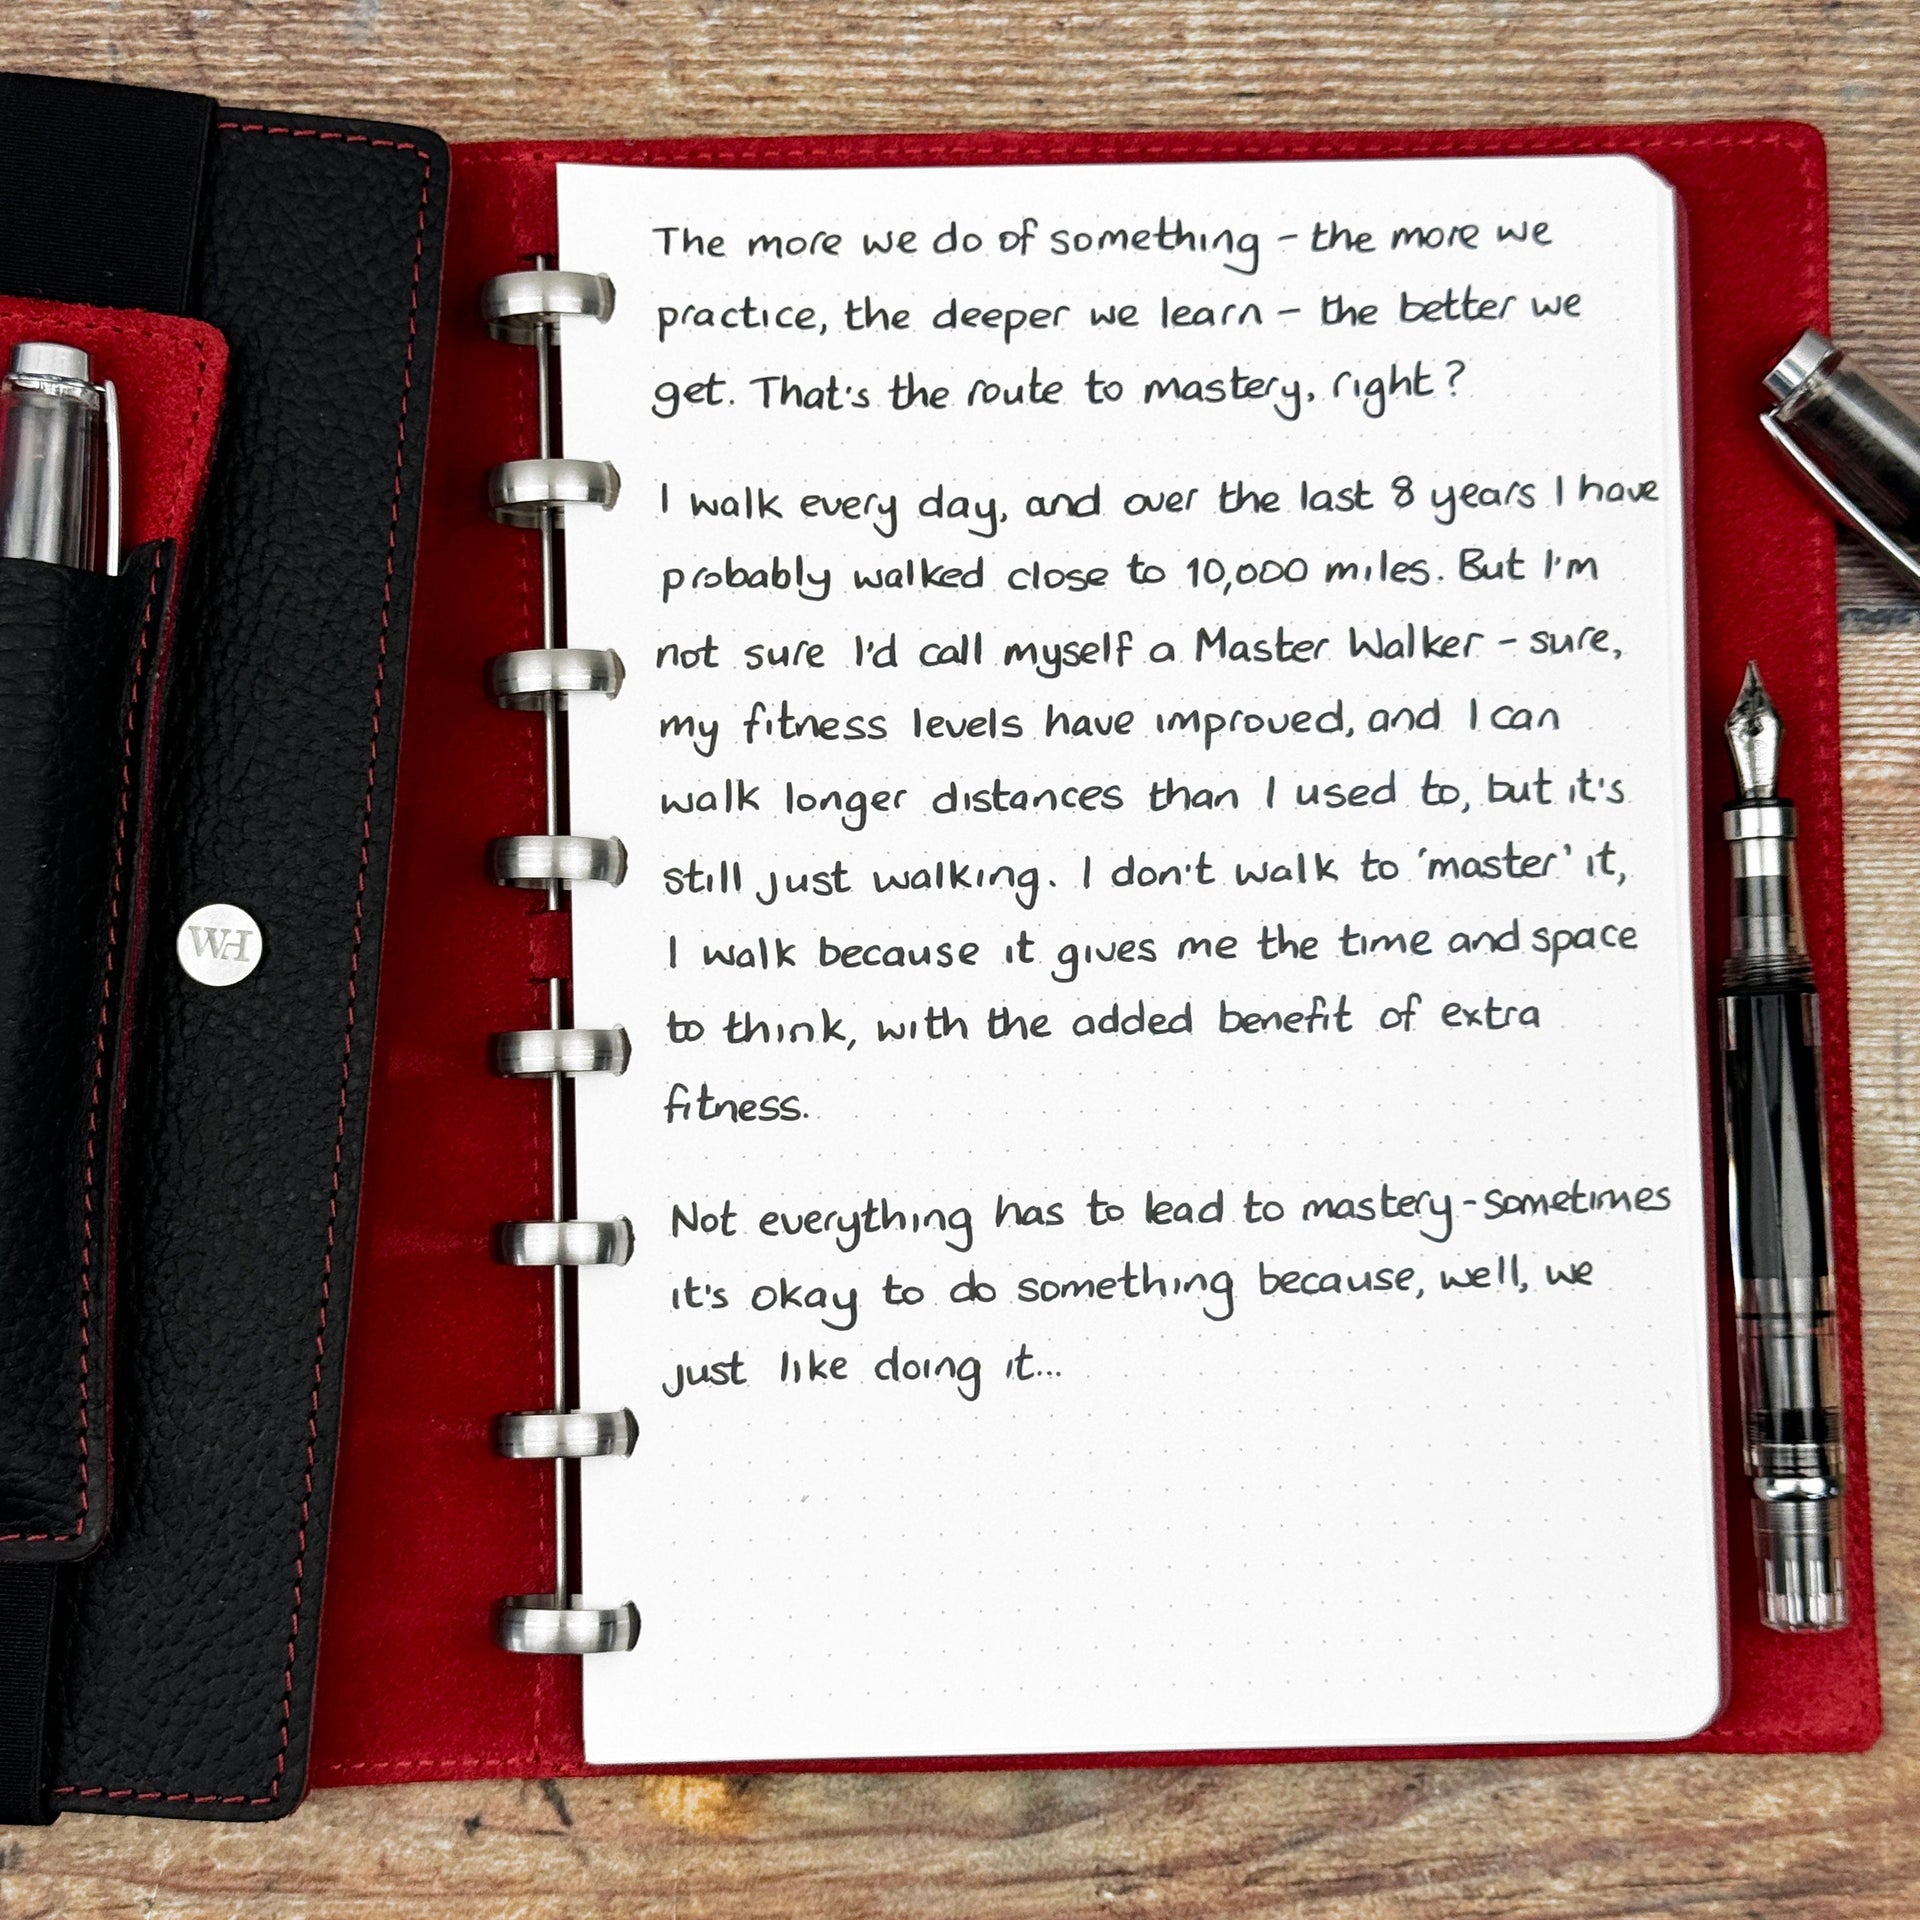 The more we do of something – the more we
practice, the deeper we learn – the better we
get. That's the route to mastery, right?
I walk every day, and over the last 8 years I have
probably walked close to 10,000 miles. But I'm
not sure I'd call myself a Master Walker – sure,
my fitness levels have improved, and I can
walk longer distances than I used to, but it's
still just walking. I don't walk to 'master' it,
I walk because it gives me the time and space
to think, with the added benefit of extra
fitness.
Not everything has to lead to mastery – sometimes
it's okay to do something because, well, we
just like doing it...
WH